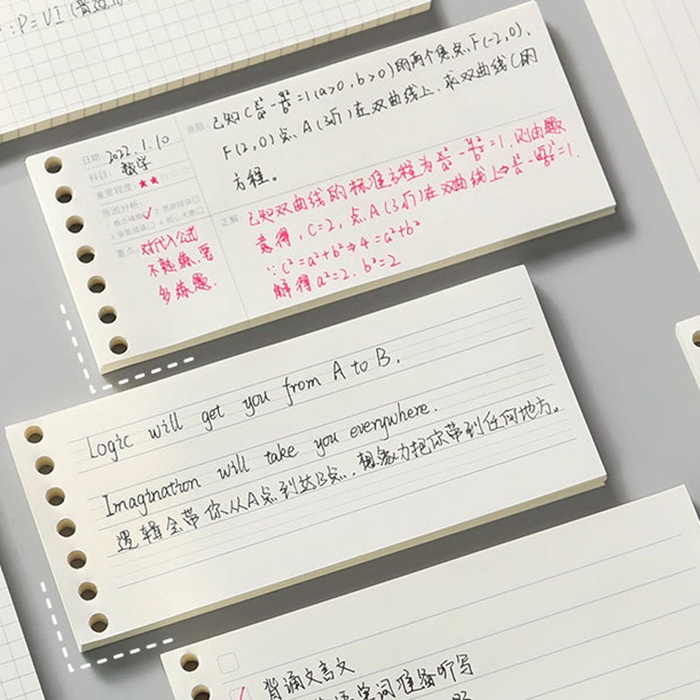 :P=UI
日期: 2022.1.10
科目: 数学
重要程度: ★★☆☆☆
原因分析:
1.概念模糊✓ 2.思路错误□
3.审题错误□ 4.粗心大意□
重点: 对代入公式
不熟练,要
多练题.
原题: 已知C x²/a² - y²/b² =1 (a>0, b>0)的两个焦点F(-2,0),
F(2,0)点A(3,√7)在双曲线上. 求双曲线C的
方程。
正解: 已知双曲线的标准方程为 x²/a² - y²/b² =1, 则由题
意得, C=2, 点A(3,√7)在双曲线上
∵c²=a²+b²⇒4=a²+b²
解得a²=2. b²=2
Logic will get you from A to B.
Imagination will take you everywhere.
逻辑会带你从A点到达B点, 想象力把你带到任何地方。
背诵文言文
单词准备听写